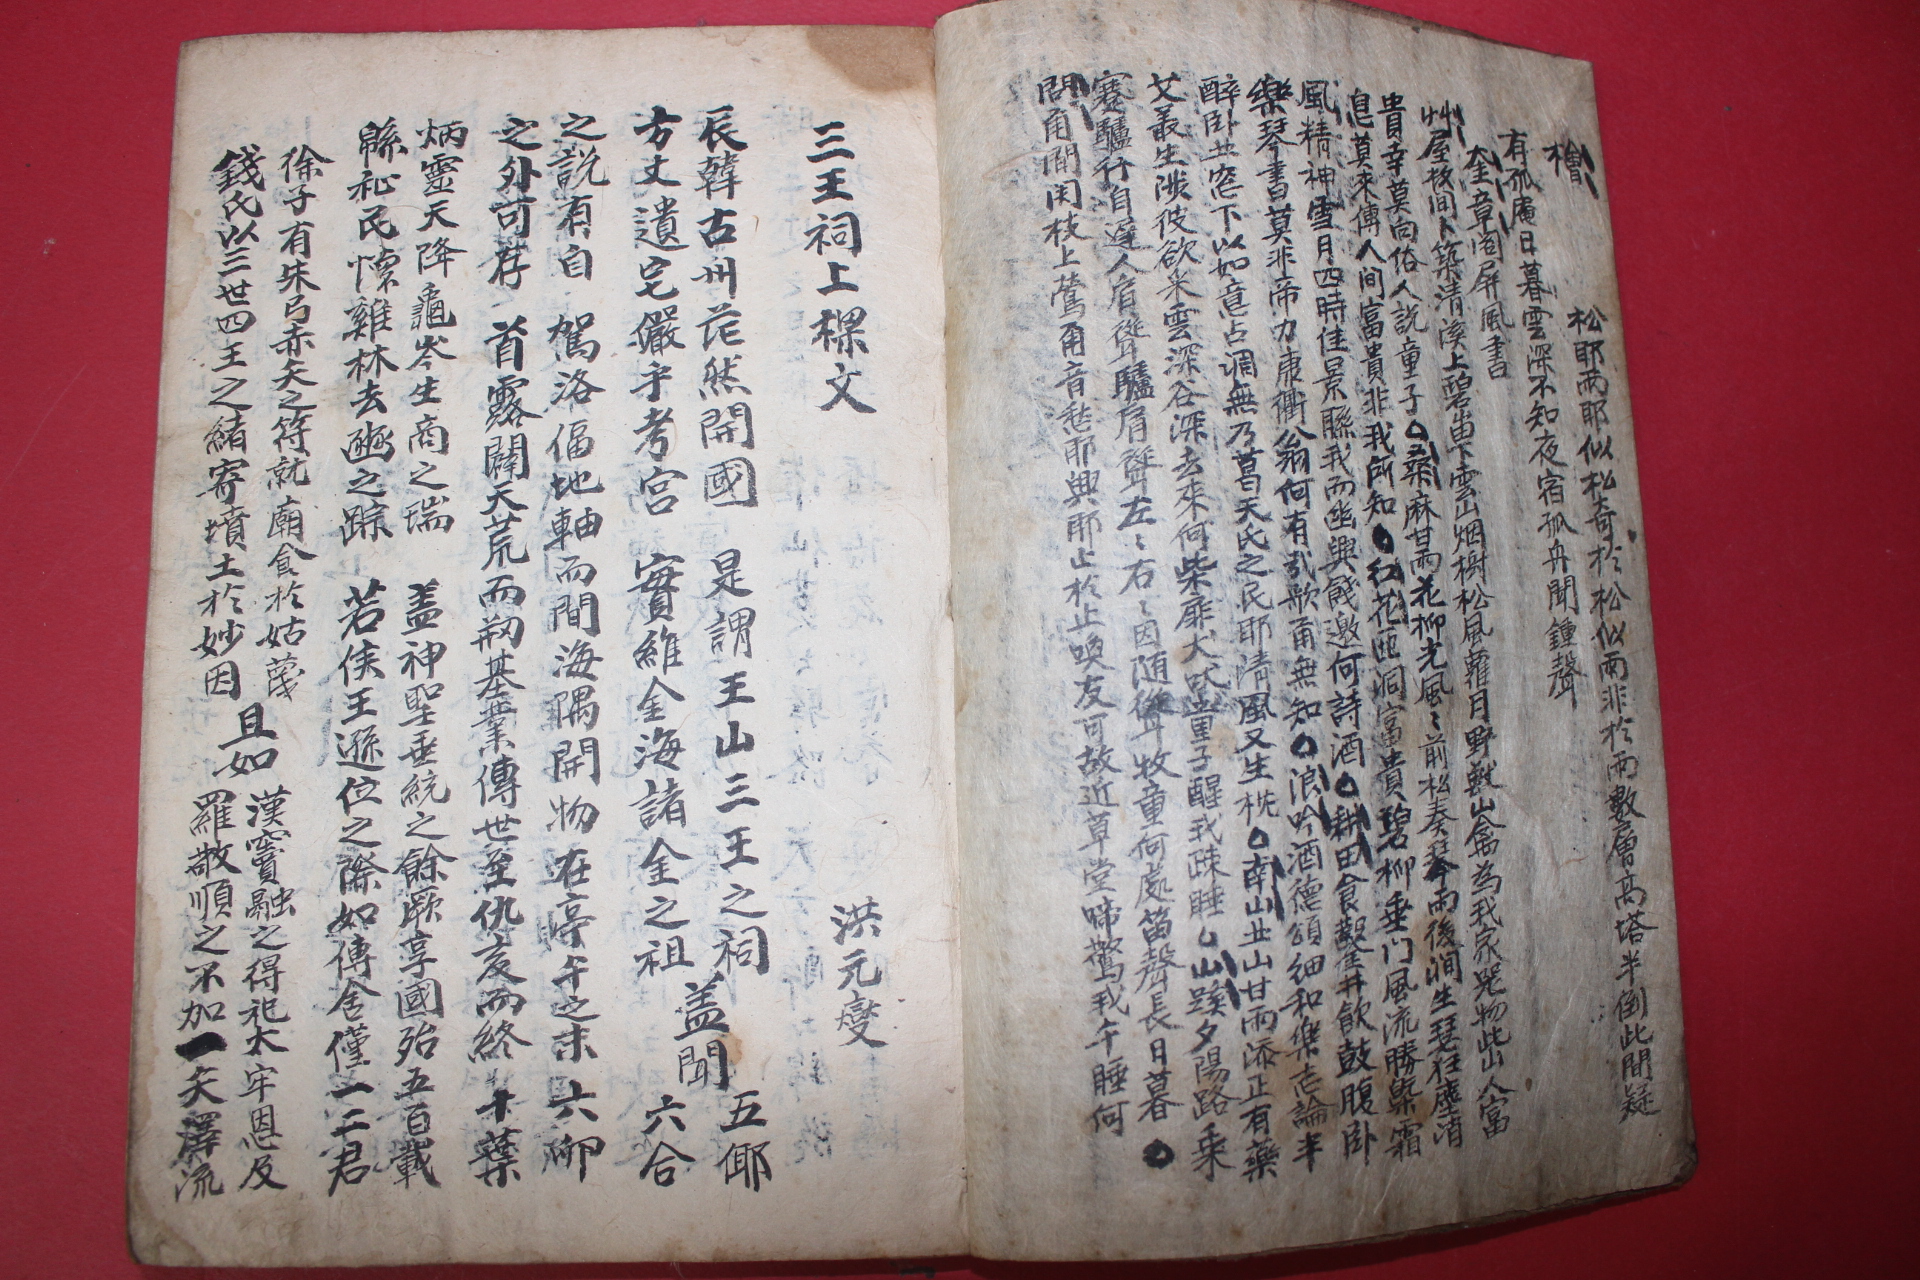 檜
松耶雨耶似松奇於松似雨非於雨數層高塔半倒此間疑
有孤庵日暮雲深不知夜宿孤舟聞鍾聲
奎章閣屏風書
艸屋枝間卜築清溪上碧岩下雲山烟樹松風蘿月野獸山禽為我家咒物此山人富
貴幸莫向俗人說童子 桑麻甘雨花柳光風風前松奏琴雨後澗生琴狂塵消
息莫來傳人間富貴非我所知 紅花 洞富貴碧柳垂門風流勝槩霜
風精神雪月四時佳景賜我而幽興餞邀何詩酒 耕田食鑿井飮鼓腹臥
樂琴書莫非帝力康衢翁何有引歌甭無知 浪吟酒德頌細和樂志論半
醉卧北窓下以如意占凋無乃葛天氏之民耶清風又生枕 南山北山甘雨添正有藥
艾叢生陟彼欲采雲深谷深去來何柴扉犬吠童子醒我踈睡 山蹊夕陽路乘
蹇驢行自遲人肩聳驢肩聳左左右右因随後牧童何處笛聲長日暮
問甭關関枝上鶯甭音愁耶興耶止於止喚友可故近草堂啼驚我午睡何
三王祠上樑文
洪元燮
辰韓古州茫然開國 是謂王山三王之祠 五鄊
盖聞
方丈遺宅儼乎考宮 寔維金海諸金之祖 六合
之說有自 駕洛偪地軸而間海隅開物在渟午之末 六卵
之外可存 首露闢天荒而刱基業傳世至仇亥而終 十葉
炳靈天降龜岑生商之瑞 盖神聖垂統之餘厥享國殆五百載
緜祀民懷雞林去豳之蹤 若侯王遜位之際如傳舍僅一二君
徐子有朱弓赤矢之符就廟食於姑蔑
錢氏以三世四王之緒寄墳土於妙因
且如
漢竇融之得祀太牢恩及
羅敬順之不加一矢澤流